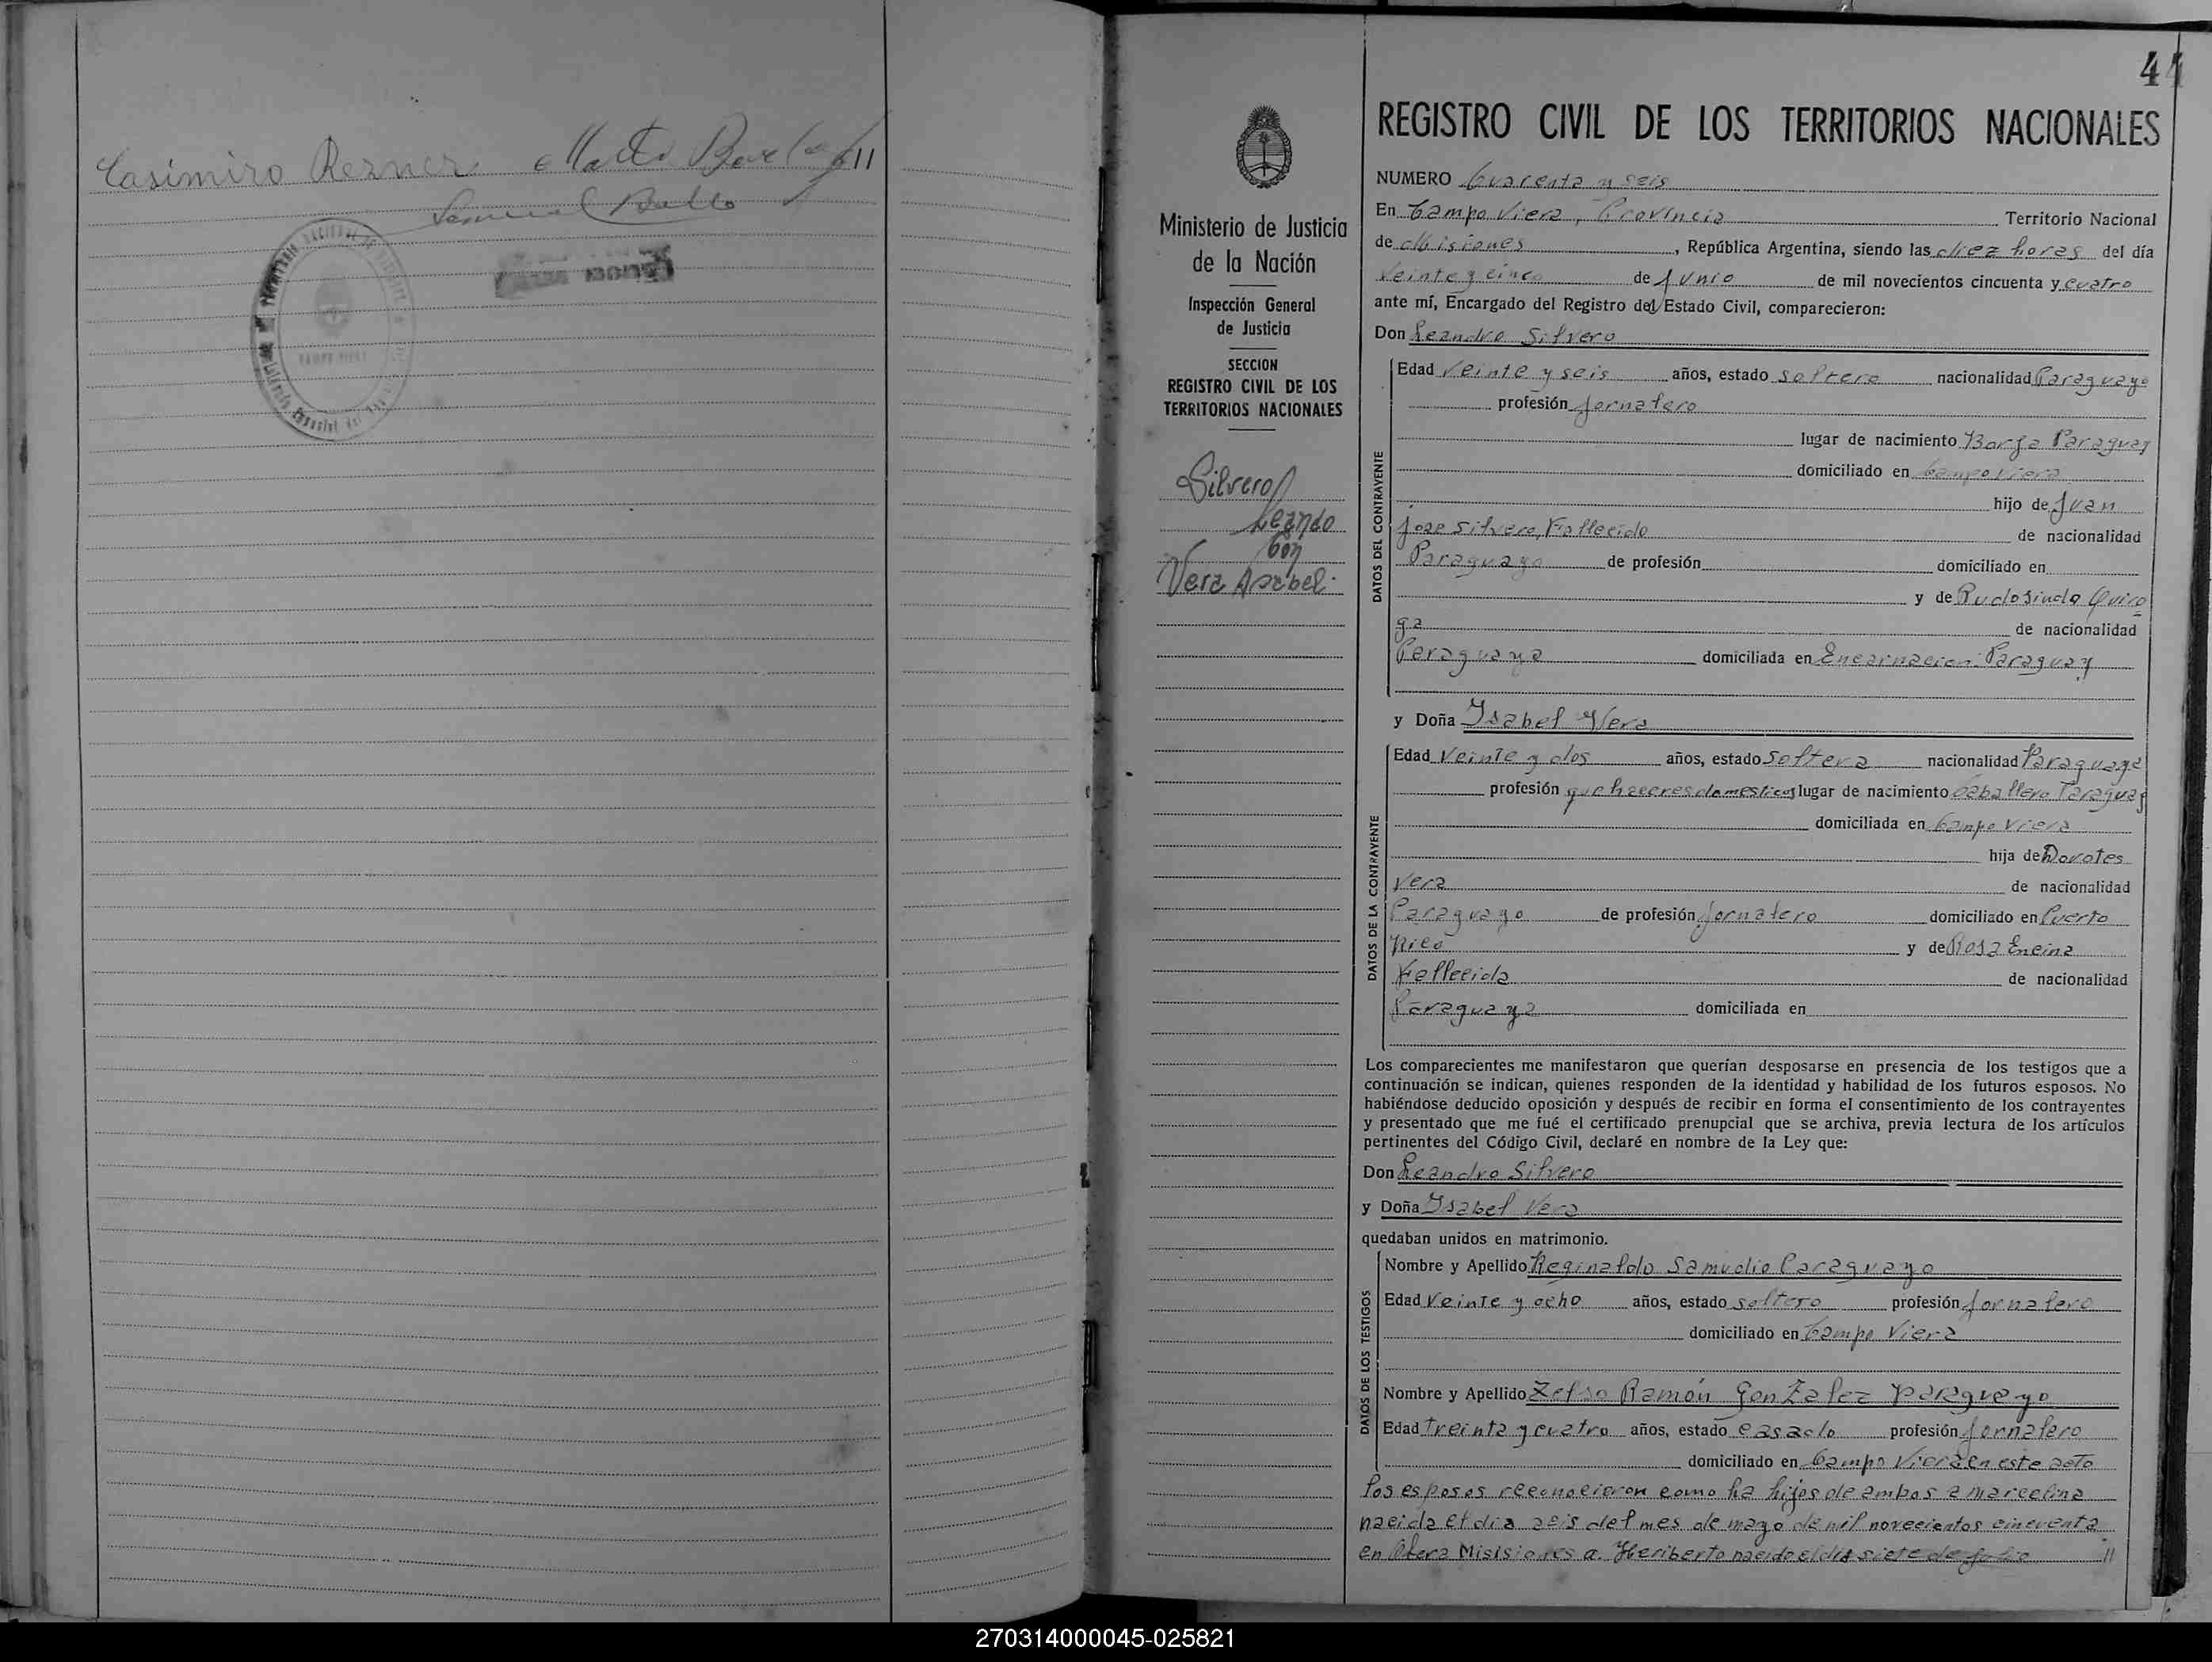 Casimiro Rezner
44
REGISTRO CIVIL DE LOS TERRITORIOS NACIONALES
Ministerio de Justicia
de la Nación
Inspección General
de Justicia
SECCION
REGISTRO CIVIL DE LOS
TERRITORIOS NACIONALES
Silvero
Leandro
Con
Vera Isabel
NUMERO Cuarenta y seis
En Campo Viera, Provincia Territorio Nacional
de Misiones, República Argentina, siendo las diez horas del día
Veinte y cinco de Junio de mil novecientos cincuenta y cuatro
ante mí, Encargado del Registro del Estado Civil, comparecieron:
Don Leandro Silvero
DATOS DEL CONTRAYENTE
Edad Veinte y seis años, estado soltero nacionalidad Paraguayo
profesión Jornalero
lugar de nacimiento Borja Paraguay
domiciliado en Campo Viera
hijo de Juan
Jose Silvero, Fallecido de nacionalidad
Paraguayo de profesión domiciliado en
y de Rudosinda Quiro
ga de nacionalidad
Paraguaya domiciliada en Encarnacion Paraguay
y Doña Ysabel Vera
DATOS DE LA CONTRAYENTE
Edad Veinte y dos años, estado Soltera nacionalidad Paraguaya
profesión que haceres domesticos lugar de nacimiento Caballero Paraguay
domiciliada en Campo Viera
hija de Dorotes
Vera de nacionalidad
Paraguayo de profesión Jornalero domiciliado en Puerto
Rico y de Rosa Encina
Fallecida de nacionalidad
Paraguaya domiciliada en
Los comparecientes me manifestaron que querían desposarse en presencia de los testigos que a
continuación se indican, quienes responden de la identidad y habilidad de los futuros esposos. No
habiéndose deducido oposición y después de recibir en forma el consentimiento de los contrayentes
y presentado que me fué el certificado prenupcial que se archiva, previa lectura de los artículos
pertinentes del Código Civil, declaré en nombre de la Ley que:
Don Leandro Silvero
y Doña Ysabel Vera
quedaban unidos en matrimonio.
DATOS DE LOS TESTIGOS
Nombre y Apellido Reginaldo Samudio Paraguayo
Edad Veinte y ocho años, estado soltero profesión Jornalero
domiciliado en Campo Viera
Nombre y Apellido Zelso Ramón Gonzalez paraguayo
Edad treinta y cuatro años, estado casado profesión Jornalero
domiciliado en Campo Viera en este acto
los esposos reconocieron como ha hijos de ambos a marcelina
nacida el dia seis del mes de mayo de mil novecientos cincuenta
en Obera Misisiones a. Heriberto nacido el dia siete de Julio //
270314000045-025821